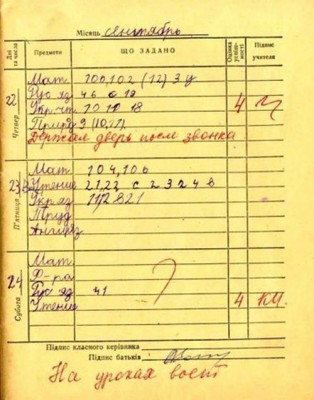 Місяць сентябрь
Дні та числа
Предмети
ЩО ЗАДАНО
Оцінка успіш-ності
Підпис учителя
22
Четвер
Мат. 100,102 (12) 3 у
Рус яз 46 с 19
Укр.чт 20 10 18
Природ 9 (10,11)
4
Держал дверь после звонка
23
П'ятниця
Мат. 104,106
Чтение 21,22 с 23 24 в
Укр яз
Труд
Англ яз
24
Субота
Мат.
Ф-ра
Рус яз 41
Чтение
4
Підпис класного керівника
Підпис батьків
На уроках воет